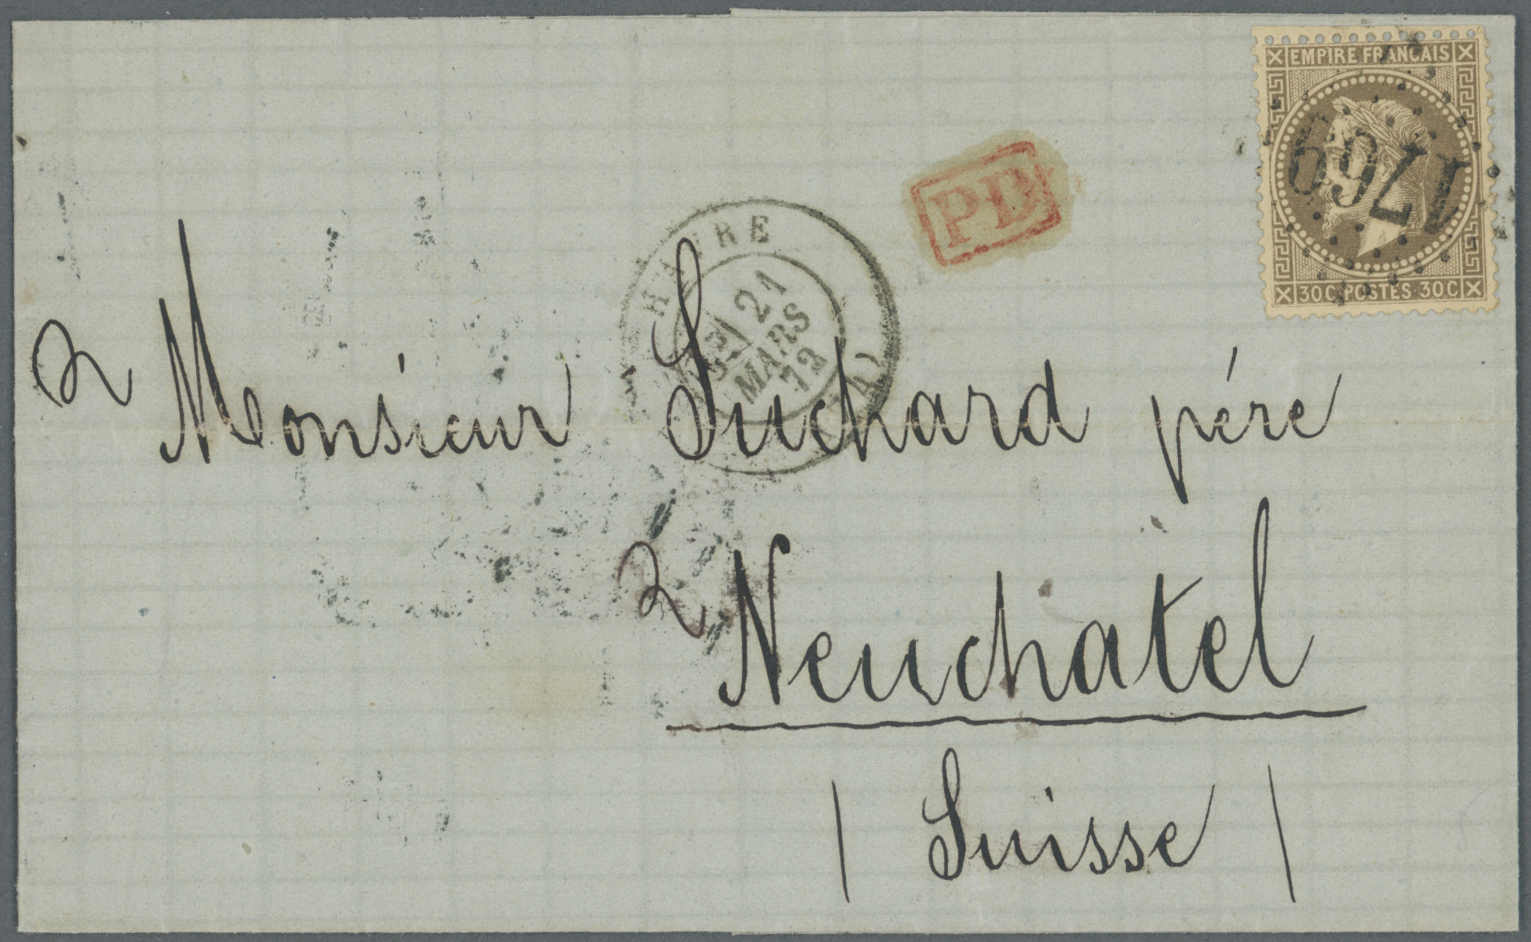 EMPIRE FRANCAIS
1769
30 C POSTES 30 C
PD
HAVRE
21
MARS
72
Monsieur Suchard père
Neuchatel
| Suisse |